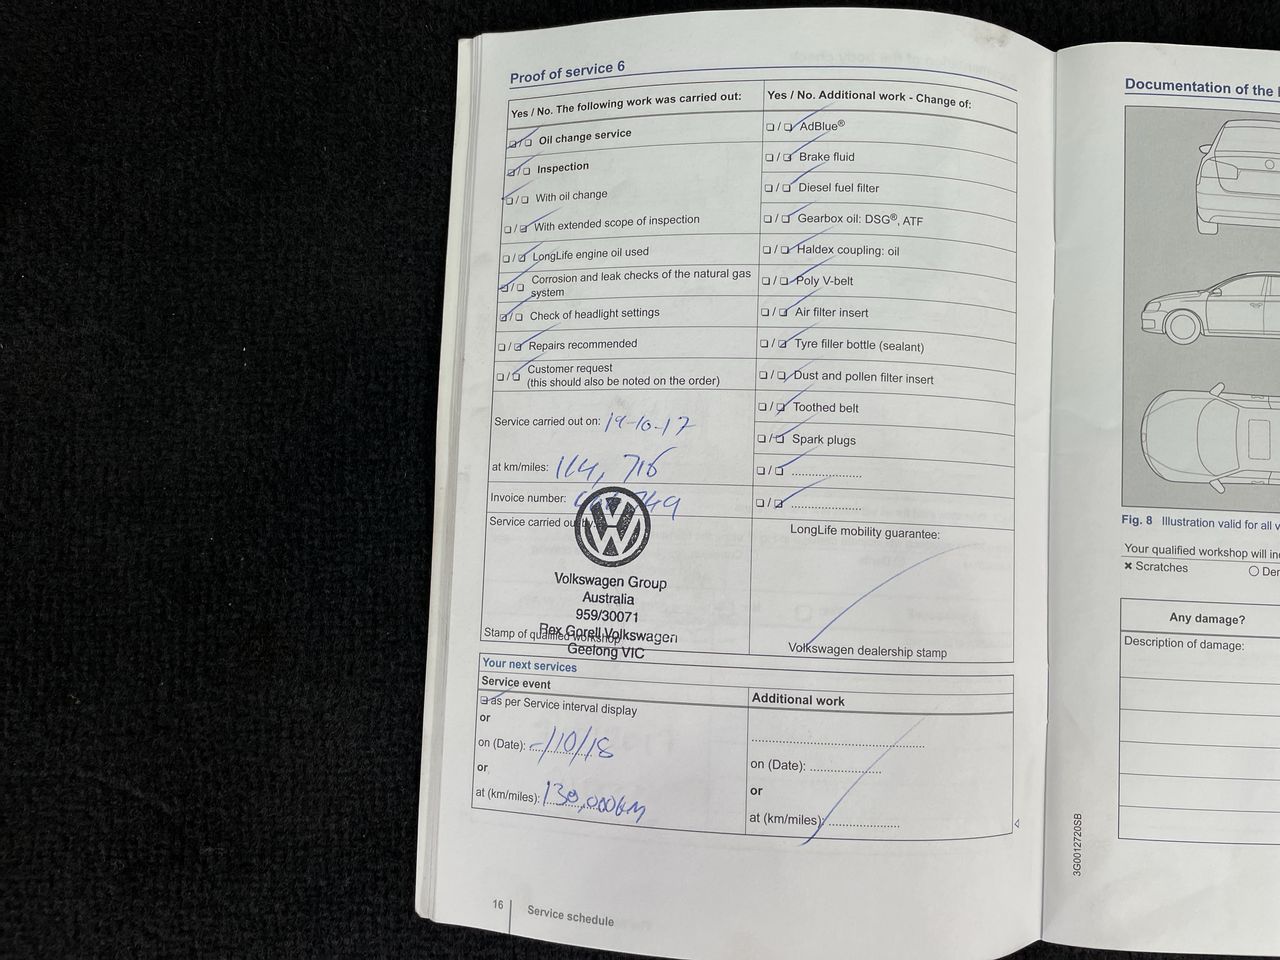 Proof of service 6
Yes / No. The following work was carried out:
❑ / ❑ Oil change service
❑ / ❑ Inspection
❑ / ❑ With oil change
❑ / ❑ With extended scope of inspection
❑ / ❑ LongLife engine oil used
❑ / ❑ Corrosion and leak checks of the natural gas
system
❑ / ❑ Check of headlight settings
❑ / ❑ Repairs recommended
❑ / ❑ Customer request
(this should also be noted on the order)
Service carried out on: 19-10-17
at km/miles: 114, 716
Invoice number:
Service carried out by:
Volkswagen Group
Australia
959/30071
Rex Gorell Volkswagen
Geelong VIC
Stamp of qualified workshop
Yes / No. Additional work - Change of:
❑ / ❑ AdBlue®
❑ / ❑ Brake fluid
❑ / ❑ Diesel fuel filter
❑ / ❑ Gearbox oil: DSG®, ATF
❑ / ❑ Haldex coupling: oil
❑ / ❑ Poly V-belt
❑ / ❑ Air filter insert
❑ / ❑ Tyre filler bottle (sealant)
❑ / ❑ Dust and pollen filter insert
❑ / ❑ Toothed belt
❑ / ❑ Spark plugs
❑ / ❑ .....................
❑ / ❑ .....................
LongLife mobility guarantee:
Volkswagen dealership stamp
Your next services
Service event
❑ as per Service interval display
or
on (Date): -/10/18
or
at (km/miles): 130,000KM
Additional work
.....................................................
on (Date): ......................
or
at (km/miles): ......................
16
Service schedule
Documentation of the
Fig. 8 Illustration valid for all v
Your qualified workshop will in
✖ Scratches
○ Der
Any damage?
Description of damage:
3G0012720SB